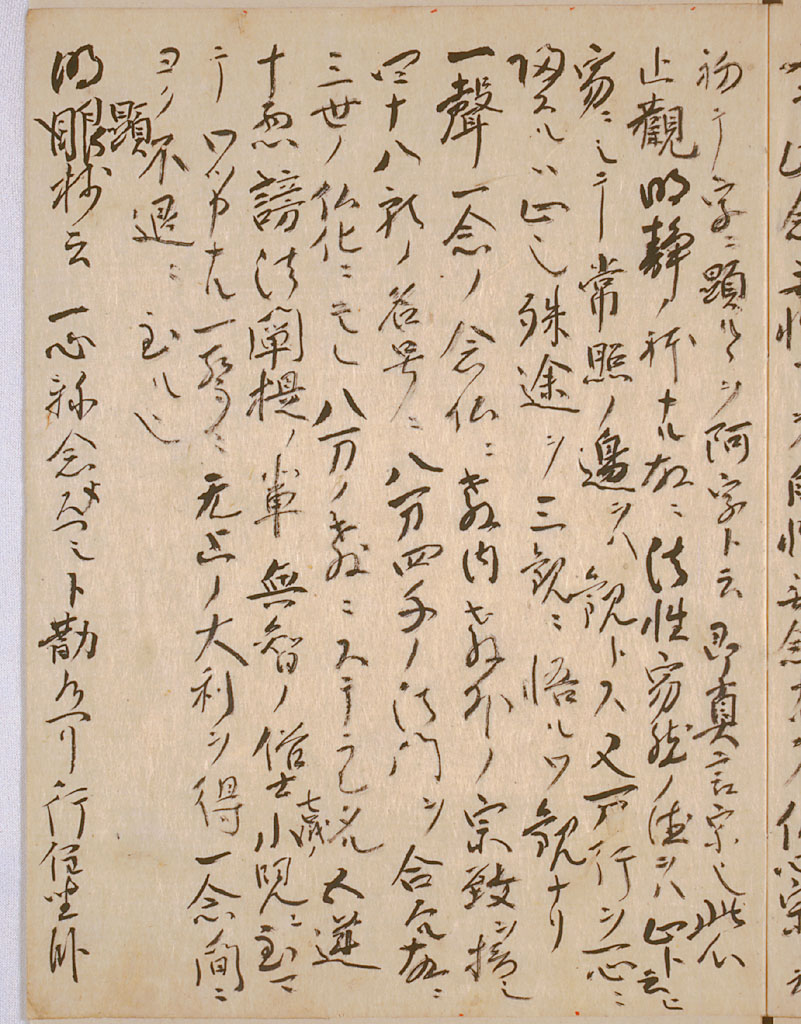 初テ字ニ顕ルヽヲ阿字ト云即真言宗也此心
止観明静ノ躰ナル故ニ法性寂然ノ徳ヲハ止ト云ヒ
寂ニシテ常照ノ邊ヲハ観トス又万行ヲ一心ニ
帰スルハ止也殊途ヲ三観ニ悟ルヲ観ナリ
一聲一念ノ念仏ニ教内教外ノ宗致ヲ接シ
四十八願ノ名号ニ八万四千ノ法門ヲ合
三世ノ仏化ニモレ八万ノ教ニステラレタル五逆
十悪謗法闡提ノ輩無智ノ俗士七歳ノ小児ニ至マ
テワツカナル一聲ニ无上ノ大利ヲ得一念ノ間ニ
ヨク不退ニ至ル也
顕
明眼抄云一心称念ト勧行住坐臥